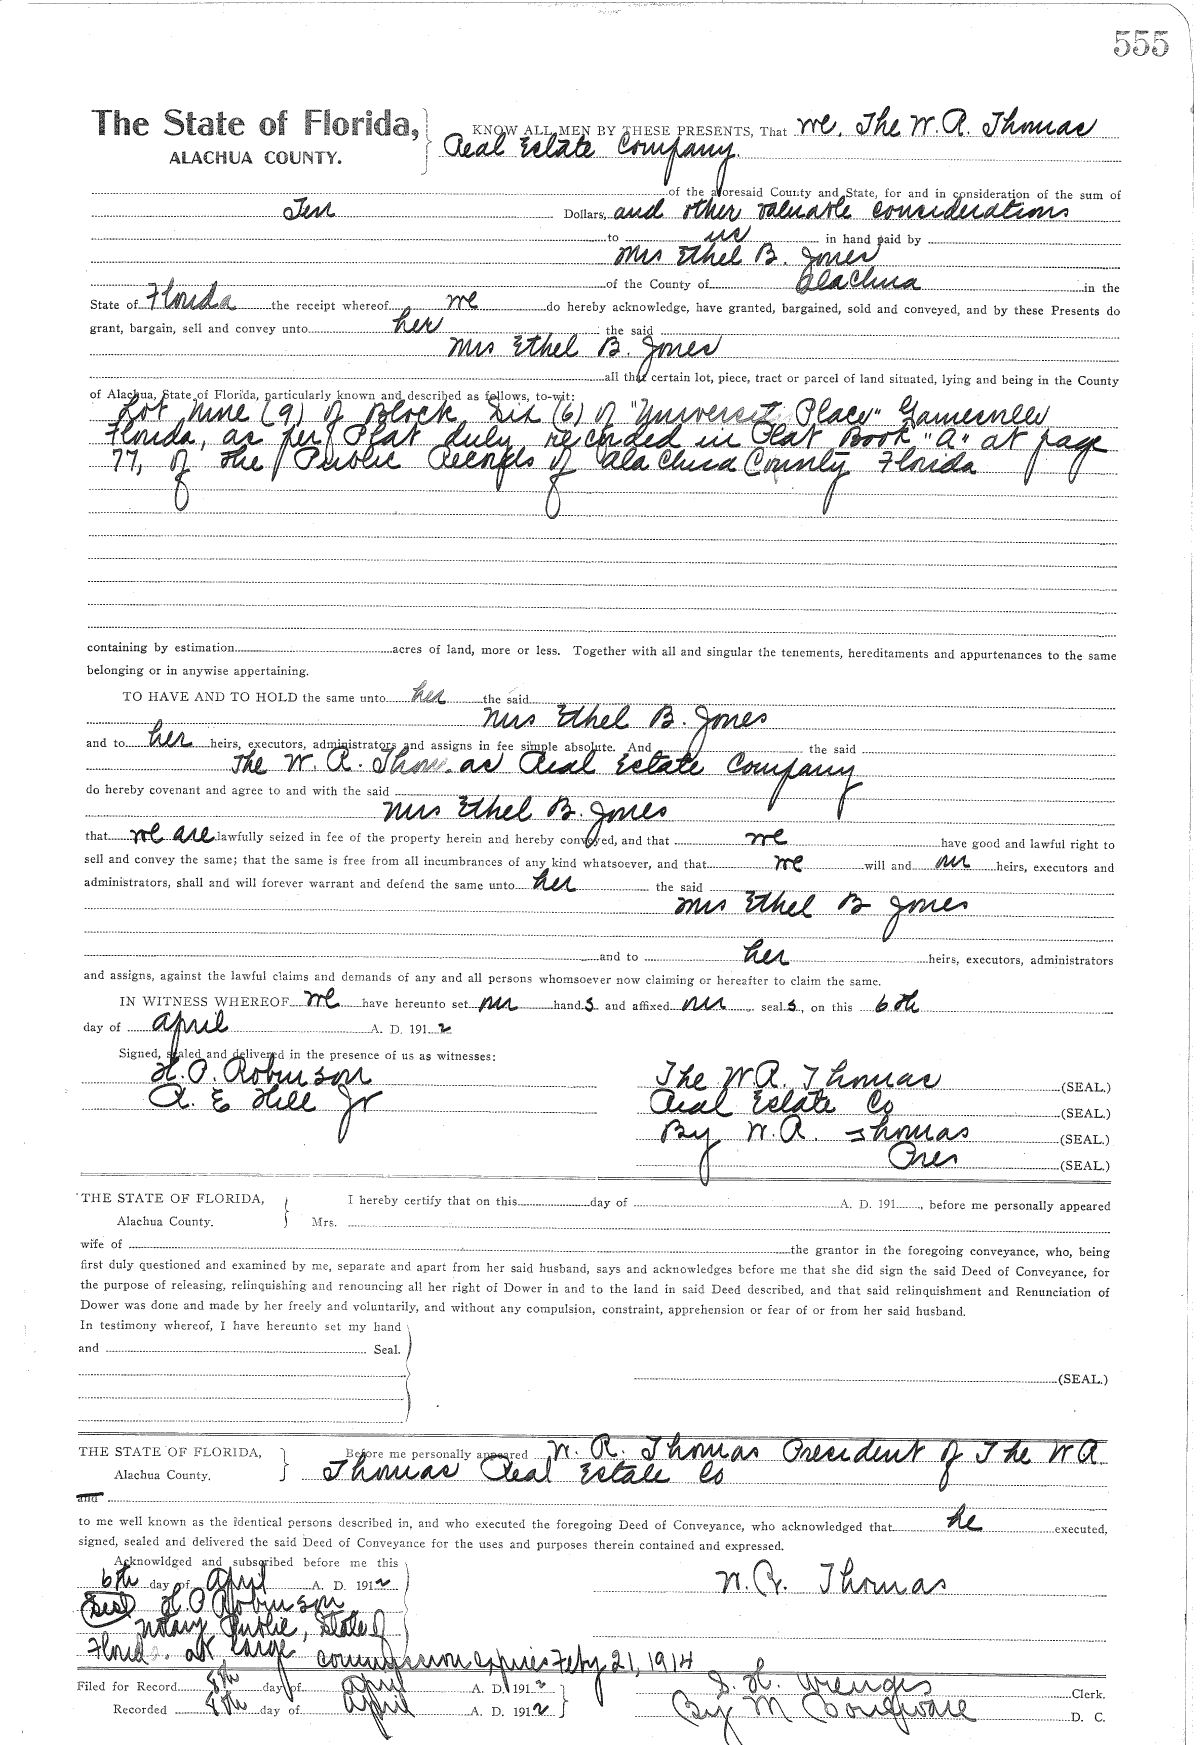 555
The State of Florida, KNOW ALL MEN BY THESE PRESENTS, That we, The W. R. Thomas
ALACHUA COUNTY. Real Estate Company.
of the aforesaid County and State, for and in consideration of the sum of
Ten Dollars, and other valuable considerations
to us in hand paid by
Mrs Ethel B. Jones
of the County of Alachua in the
State of Florida the receipt whereof we do hereby acknowledge, have granted, bargained, sold and conveyed, and by these Presents do
grant, bargain, sell and convey unto her the said
Mrs Ethel B. Jones
all that certain lot, piece, tract or parcel of land situated, lying and being in the County
of Alachua, State of Florida, particularly known and described as follows, to-wit:
Lot Nine (9) of Block Six (6) of "University Place" Gainesville
Florida, as per Plat duly recorded in Plat Book "A" at page
77, of the Public Records of Alachua County Florida
containing by estimation acres of land, more or less. Together with all and singular the tenements, hereditaments and appurtenances to the same
belonging or in anywise appertaining.
TO HAVE AND TO HOLD the same unto her the said
Mrs Ethel B. Jones
and to her heirs, executors, administrators and assigns in fee simple absolute. And the said
The W. R. Thomas Real Estate Company
do hereby covenant and agree to and with the said
Mrs Ethel B. Jones
that we are lawfully seized in fee of the property herein and hereby conveyed, and that we have good and lawful right to
sell and convey the same; that the same is free from all incumbrances of any kind whatsoever, and that we will and our heirs, executors and
administrators, shall and will forever warrant and defend the same unto her the said
Mrs Ethel B Jones
and to her heirs, executors, administrators
and assigns, against the lawful claims and demands of any and all persons whomsoever now claiming or hereafter to claim the same.
IN WITNESS WHEREOF we have hereunto set our hands and affixed our seals, on this 6th
day of April A. D. 1912
Signed, sealed and delivered in the presence of us as witnesses:
H. O. Robinson The W. R. Thomas (SEAL.)
R. E Hill Jr Real Estate Co (SEAL.)
By W. R. Thomas (SEAL.)
Pres (SEAL.)
THE STATE OF FLORIDA, I hereby certify that on this day of A. D. 191 , before me personally appeared
Alachua County. Mrs.
wife of the grantor in the foregoing conveyance, who, being
first duly questioned and examined by me, separate and apart from her said husband, says and acknowledges before me that she did sign the said Deed of Conveyance, for
the purpose of releasing, relinquishing and renouncing all her right of Dower in and to the land in said Deed described, and that said relinquishment and Renunciation of
Dower was done and made by her freely and voluntarily, and without any compulsion, constraint, apprehension or fear of or from her said husband.
In testimony whereof, I have hereunto set my hand
and Seal.
(SEAL.)
THE STATE OF FLORIDA, Before me personally appeared W. R. Thomas President of The W R
Alachua County. Thomas Real Estate Co
and
to me well known as the identical persons described in, and who executed the foregoing Deed of Conveyance, who acknowledged that he executed,
signed, sealed and delivered the said Deed of Conveyance for the uses and purposes therein contained and expressed.
Acknowldged and subscribed before me this
6th day of April A. D. 1912 W. R. Thomas
(Seal) H O Robinson
Notary Public, State of
Florida at large Commission expires Feby 21, 1914
Filed for Record 8th day of April A. D. 1912 S. H. Wienges Clerk.
Recorded 8th day of April A. D. 1912 By M D. C.